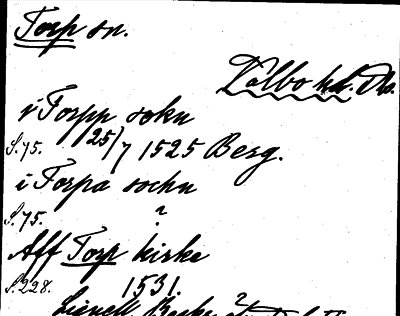 Torp sn.
Valbo hd. Ds.
i Torpp sokn
S. 75. 25/7 1525 Berg.
i Torpa sochn
S. 75. ?
Aff Torp kirke
S. 228. 1531.